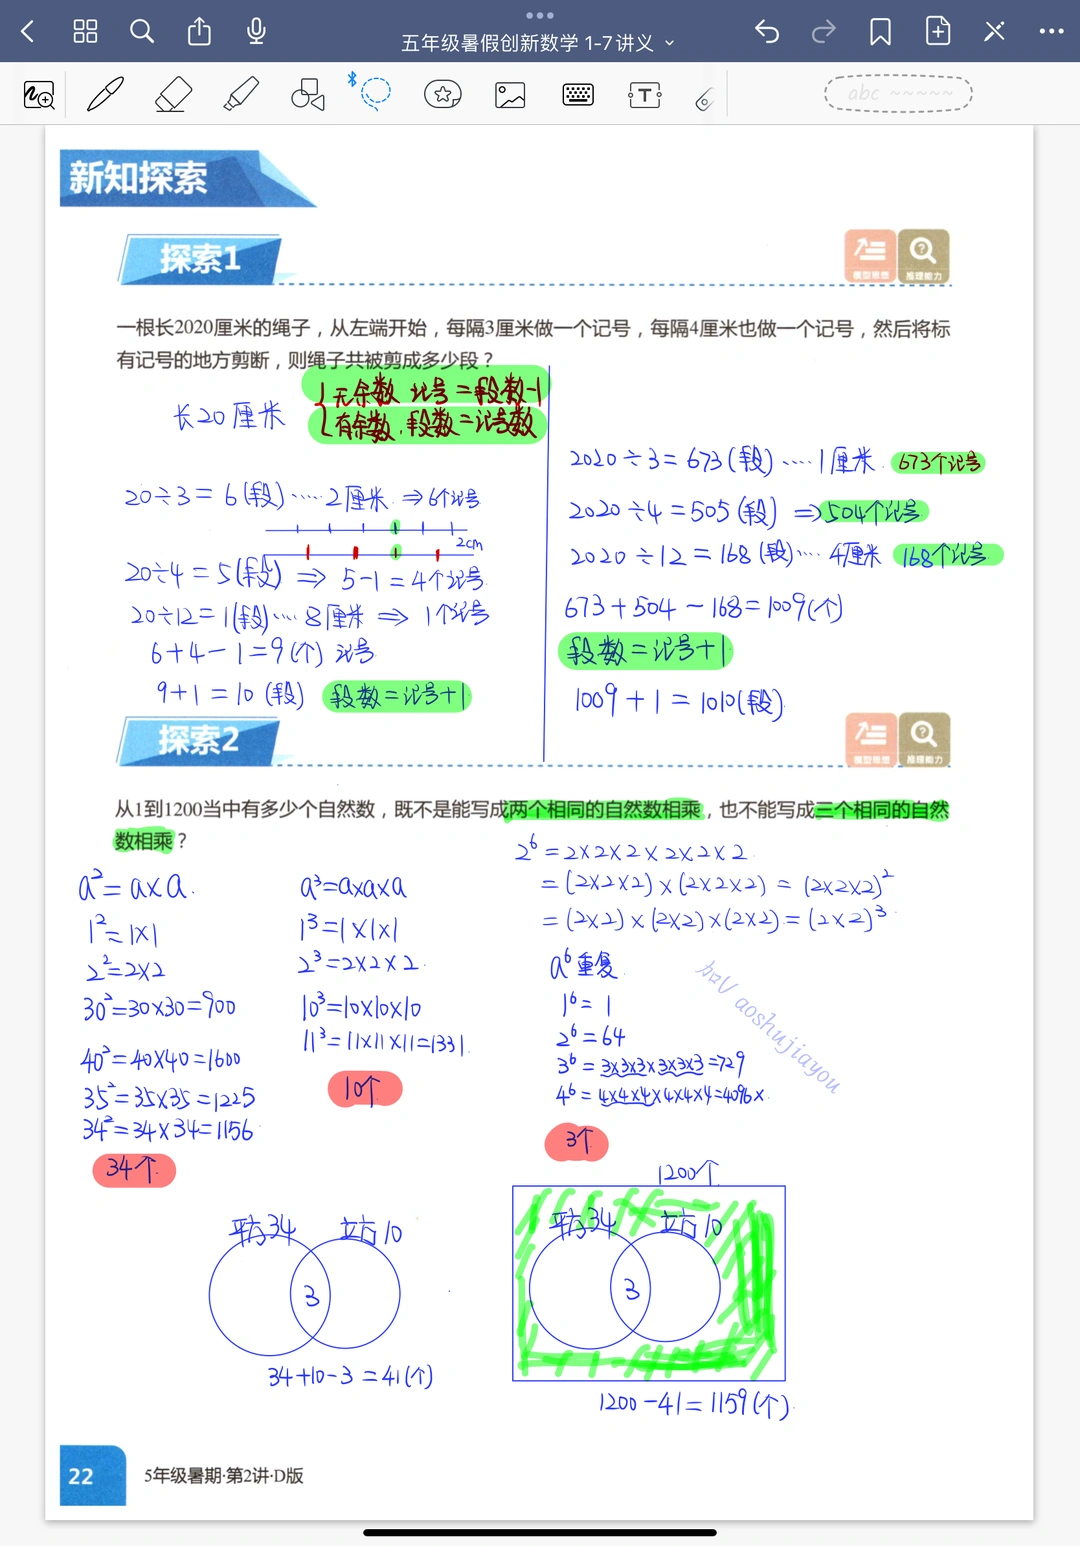 五年级暑假创新数学 1-7讲义
abc ~~~~~
新知探索
探索1
模型思想
推理能力
一根长2020厘米的绳子，从左端开始，每隔3厘米做一个记号，每隔4厘米也做一个记号，然后将标
有记号的地方剪断，则绳子共被剪成多少段？
无余数 记号=段数-1
有余数.段数=记号数
长20厘米
20÷3=6(段)·····2厘米 ⇒6个记号
2cm
20÷4=5(段) ⇒ 5-1=4个记号
20÷12=1(段)····8厘米 ⇒ 1个记号
6+4-1=9(个) 记号
9+1=10 (段) 段数=记号+1
2020÷3=673(段)·····1厘米 673个记号
2020÷4=505(段) ⇒504个记号
2020÷12=168(段)···4厘米 168个记号
673+504-168=1009(个)
段数=记号+1
1009+1=1010(段)
探索2
模型思想
推理能力
从1到1200当中有多少个自然数，既不是能写成两个相同的自然数相乘，也不能写成三个相同的自然
数相乘？
a²=a×a.
1²=1×1
2²=2×2
30²=30×30=900
40²=40×40=1600
35²=35×35=1225
34²=34×34=1156
34个
a³=a×a×a
1³=1×1×1
2³=2×2×2.
10³=10×10×10
11³=11×11×11=1331.
10个
2⁶=2×2×2×2×2×2
=(2×2×2)×(2×2×2)=(2×2×2)²
=(2×2)×(2×2)×(2×2)=(2×2)³
a⁶重复
1⁶=1
2⁶=64
3⁶=3×3×3×3×3×3=729
4⁶=4×4×4×4×4×4=4096×
3个
aoshujiayou
平方34 立方10
3
34+10-3=41(个)
1200个
平方34 立方10
3
1200-41=1159(个)
22
5年级暑期·第2讲·D版